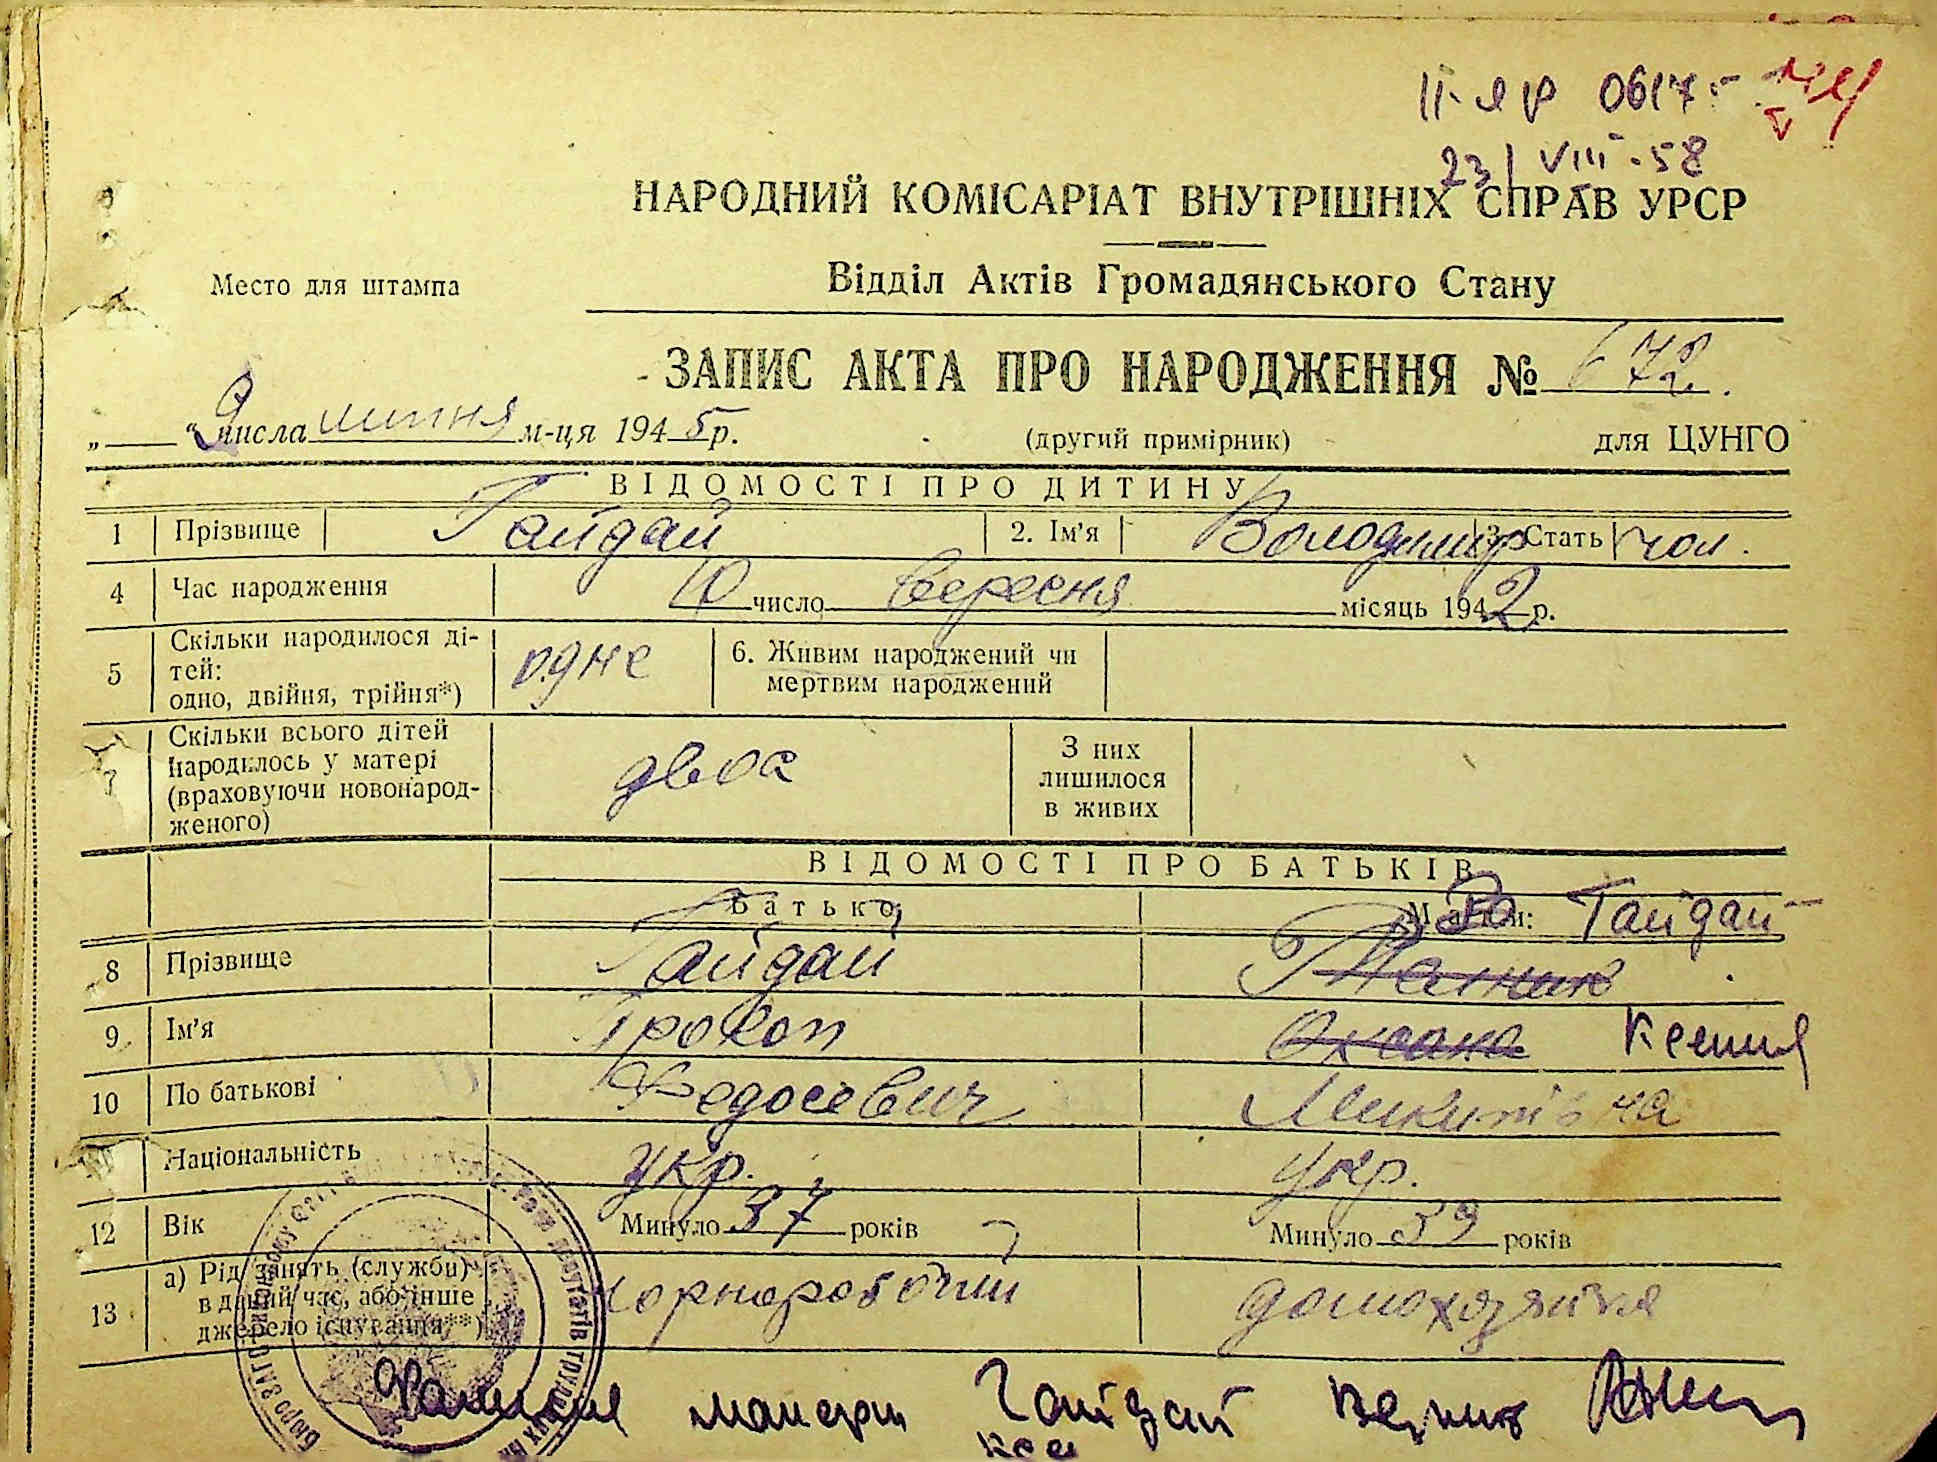 II-ЯР 0617
23/VIII-58
НАРОДНИЙ КОМІСАРІАТ ВНУТРІШНІХ СПРАВ УРСР
Место для штампа
Відділ Актів Громадянського Стану
ЗАПИС АКТА ПРО НАРОДЖЕННЯ № 672.
„ “ 9 числа липня м-ця 1945 р. (другий примірник) для ЦУНГО
ВІДОМОСТІ ПРО ДИТИНУ
1 Прізвище Гайдай 2. Ім'я Володимир 3. Стать чол.
4 Час народження 10 число вересня місяць 1942 р.
5 Скільки народилося ді-
тей:
одно, двійня, трійня*) одне 6. Живим народжений чи
мертвим народжений
7 Скільки всього дітей
народилось у матері
(враховуючи новонарод-
женого) двоє З них
лишилося
в живих
ВІДОМОСТІ ПРО БАТЬКІВ
Батько Мати: Гайдай
8 Прізвище Гайдай
9 Ім'я Прокоп Оксана Ксения
10 По батькові Федосевич Микитівна
Національність укр. укр.
12 Вік Минуло 37 років Минуло 39 років
13 а) Рід занять (служби)
в даний час, або інше
джерело існування**) Чорноробочий домохазяйка
Фамилия матери Гайдай верно
Ксе